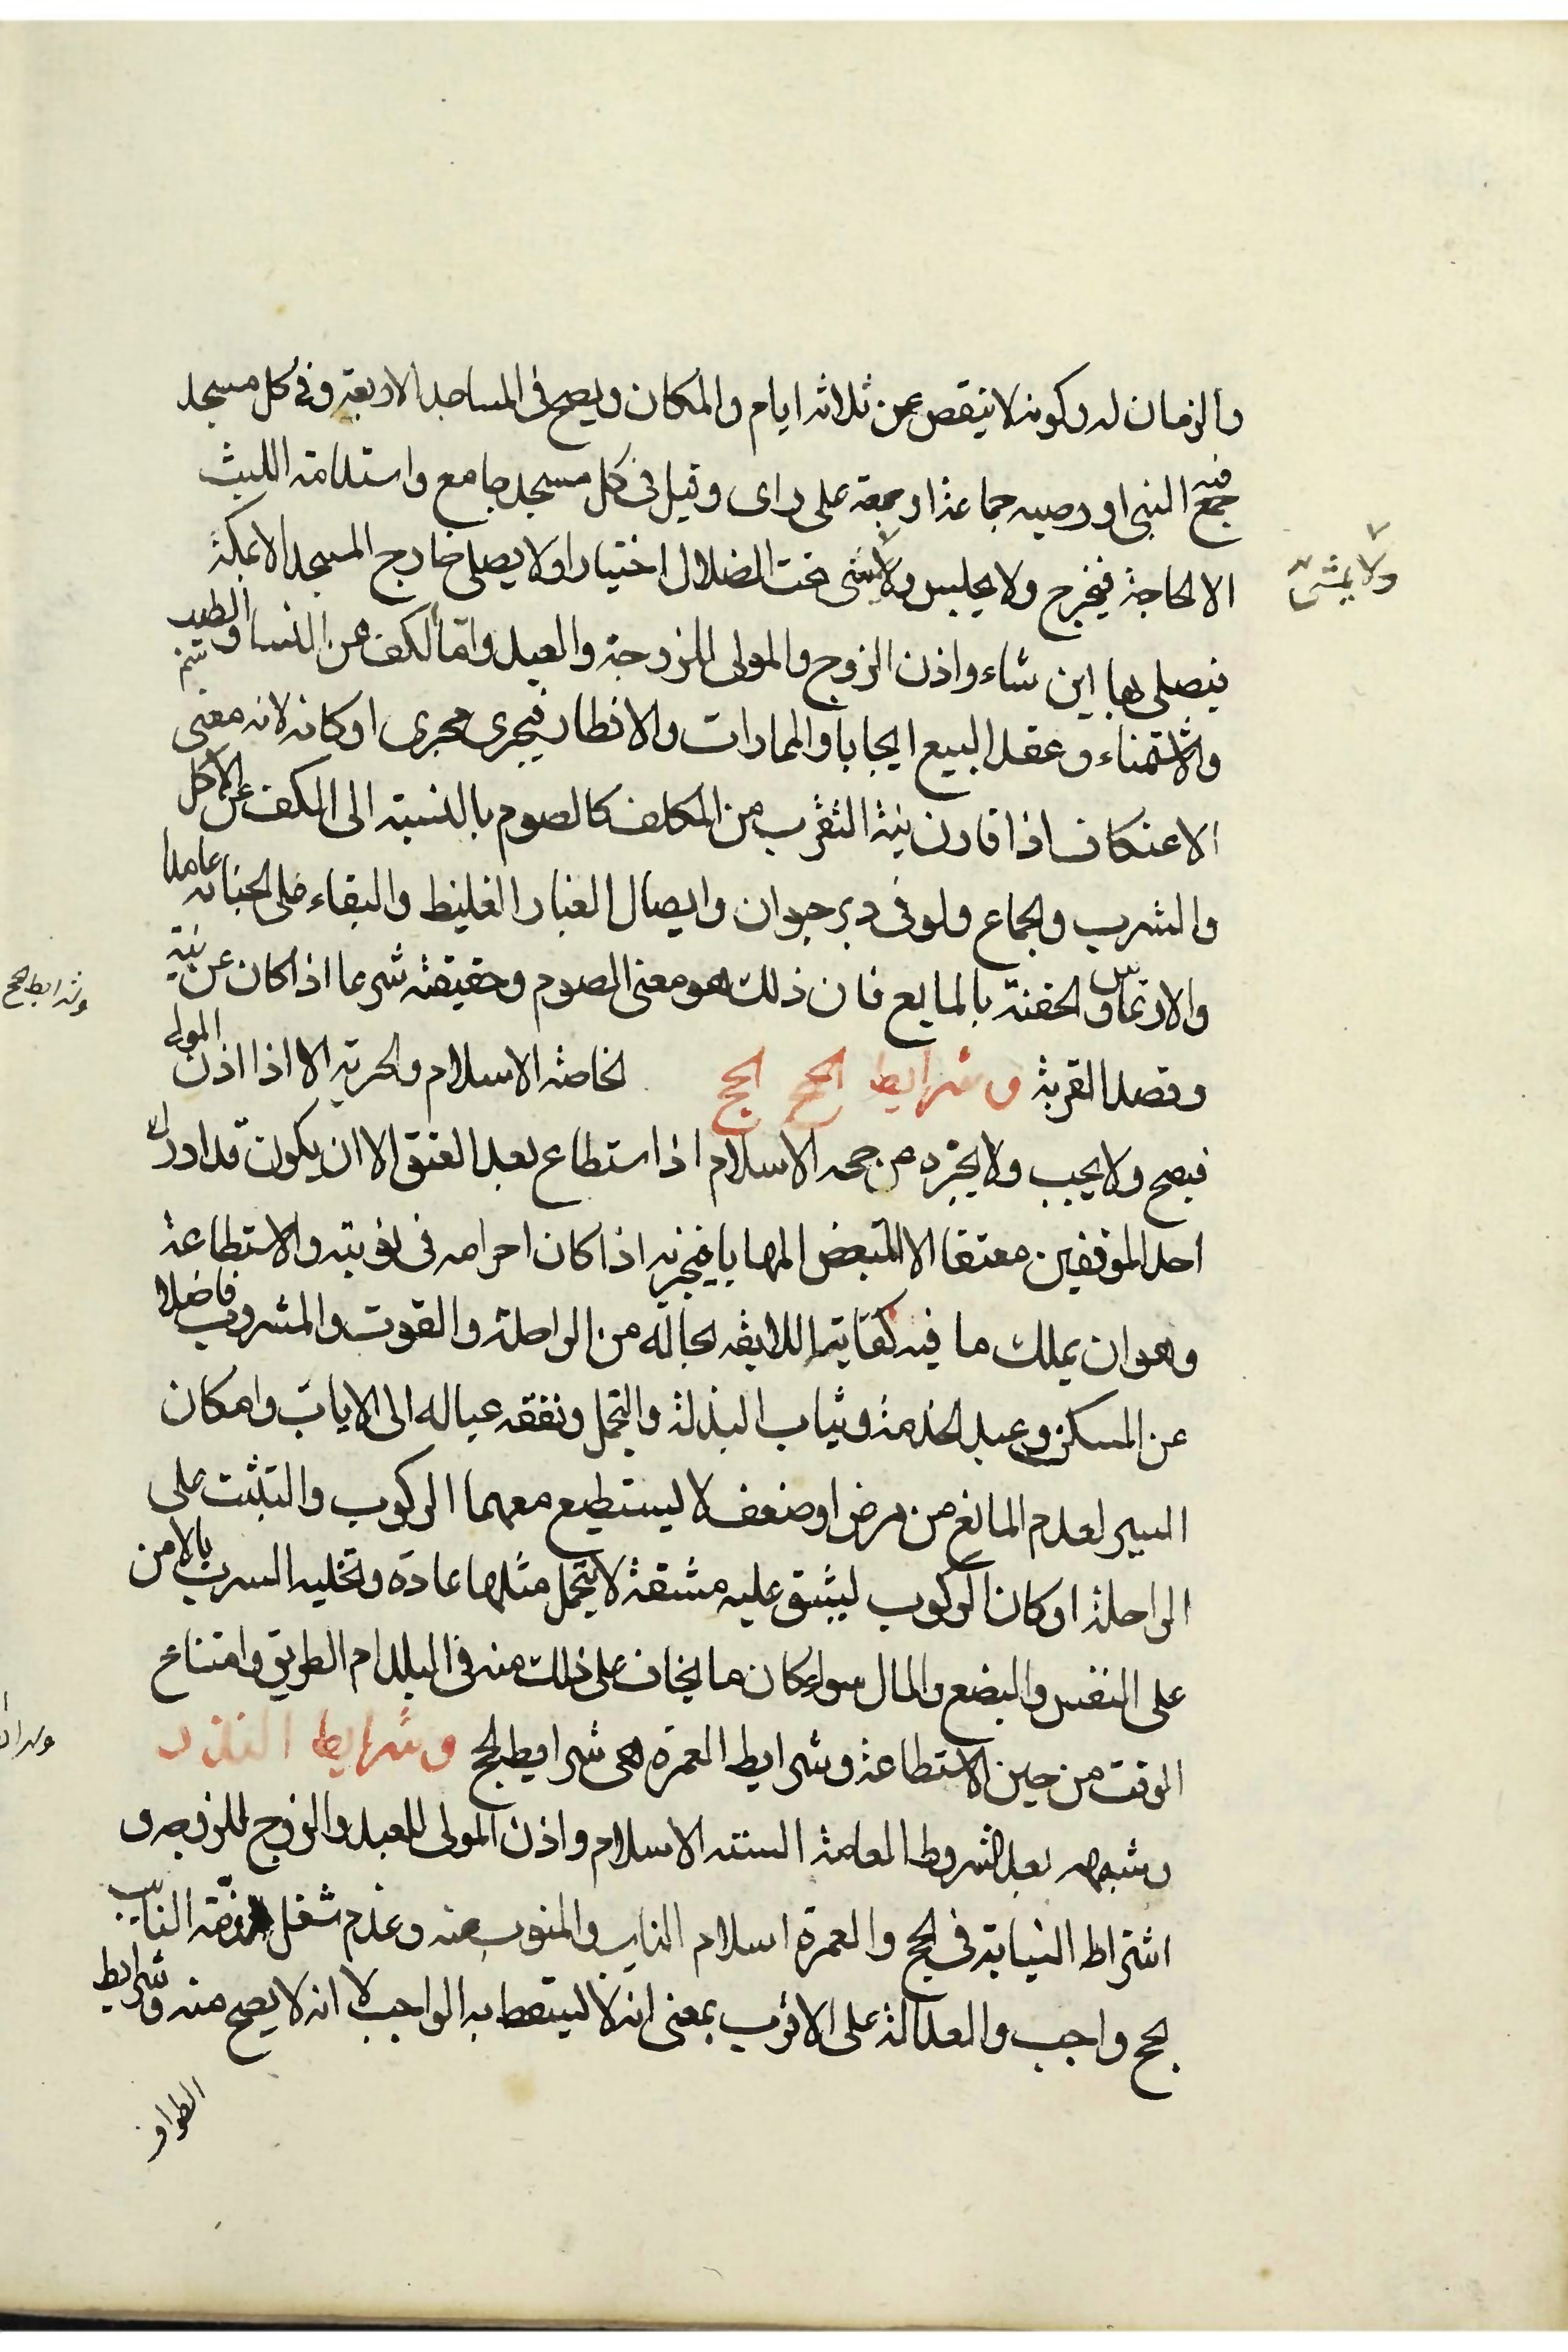 والزمان له وكونه لا ينقص عن ثلاثه ايام والمكان ويصح فى المساجد الاربعة وفى كل مسجد
جمع فيه النبى او وصيه جماعة او جمعة على راى وقيل فى كل مسجد جامع واستدامة اللبث
الا لحاجة فيخرج ولا يجلس ولا يمشى تحت الضلال اختيارا ولا يصلى خارج المسجد الا بمكة
ولا يمشى
فيصلى بها اين شاء واذن الزوج والمولى للزوجة والعبد واما الكف عن النسا وشم الطيب
والاستمناء وعقد البيع ايجابا والممارات والافطار فيجرى مجرى اركانه لانه معنى
الاعتكاف اذا قارن نية التقرب من المكلف كالصوم بالنسبة الى الكف عن الاكل
والشرب والجماع ولو فى دبر حيوان وايصال الغبار الغليظ والبقاء على الجنابه عامدا
والارتماس والحقنة بالمايع فان ذلك هو معنى الصوم وحقيقته شرعا اذا كان عن نية
وشرايط الحج
وقصد القربة وشرايط الحج الحج الخاصة الاسلام والحرية الا اذا اذن المولى
فيصح ولا يجب ولا يجزه من حجه الاسلام اذا استطاع بعد العتق الا ان يكون قد ادرك
احد الموقفين معتقا الا المتبعض المهايا فيجزيه اذا كان احرامه فى نوبته والاستطاعة
وهو ان يملك ما فيه كفايته اللايقه بحاله من الراحلة والقوت والمشروب فاضلا
عن المسكن وعبد الخدمة وثياب البذلة والتجمل ونفقه عياله الى الاياب وامكان
السير لعدم المانع من مرض او ضعف لا يستطيع معهما الركوب والتثبت على
الراحلة او كان الركوب ليشق عليه مشقة لا يتحمل مثلها عادة وتخليه السرب بالامن
على النفس والبضع والمال سواء كان ما يخاف على ذلك منه فى البلد ام الطريق وامتناع
الوقت من حين الاستطاعة وشرايط العمرة هى شرايط الحج وشرايط النذر
وشبهه بعد الشروط العامة الستة الاسلام واذن المولى للعبد والزوج للزوجه و
اشتراط النيابة فى الحج والعمرة اسلام النايب والمنوب عنه وعدم شغل ذمة النايب
بحج واجب والعدالة على الاقرب بمعنى انه لا يسقط به الواجب لا انه لا يصح منه وشرايط
الطواف